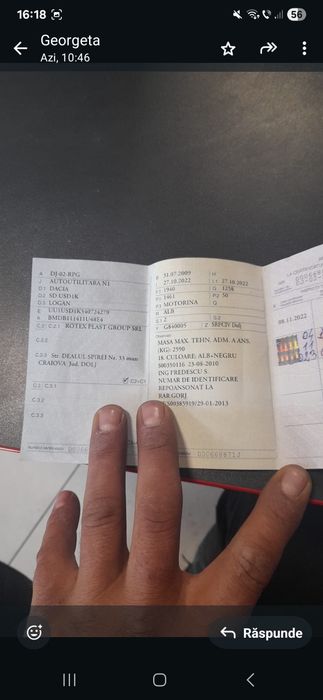 16:18
56
Georgeta
Azi, 10:46
A DJ-02-RPG
J AUTOUTILITARA N1
D.1 DACIA
D.2 SD USD1K
D.3 LOGAN
E UU1USD1K540724279
K
C.2 C.2.1 ROTEX PLAST GROUP SRL
C.2.2
C.2.3 Str. DEALUL SPIREI Nr. 33
CRAIOVA Jud. DOLJ
C2=C1
C.3.1
C.3.2
C.3.3
B 31.07.2009 H
I 27.10.2022 I.1 27.10.2022
P.1 1461 P.2 50
P.3 MOTORINA Q
R ALB
S.1 S.2
Y G840005 Z SRPCIV Dolj
MASA MAX. TEHN. ADM. A ANS.
(KG): 2590
18. CULOARE: ALB+NEGRU
S00350116 23-08-2010
ING FREDESCU S.
NUMAR DE IDENTIFICARE
REPOANSONAT LA
RAR GORJ
/29-01-2013
08.11.2022
Răspunde